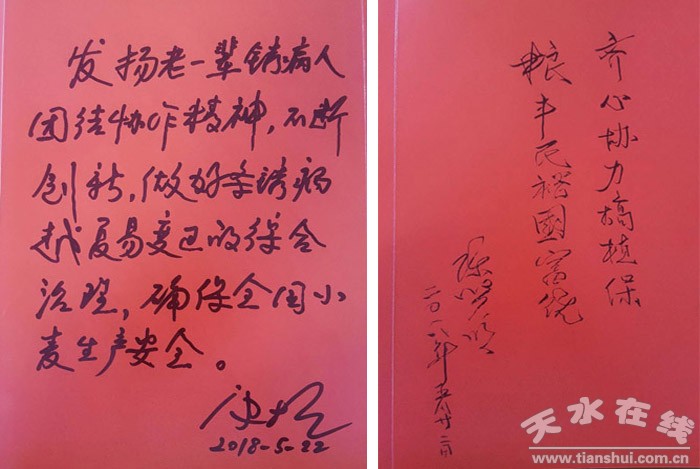 发扬老一辈锈病人
团结协作精神，不断
创新，做好条锈病
越夏易变区的综合
治理，确保全国小
麦生产安全。
康振
2018-5-22
齐心协力搞植保
粮丰民裕國富优
二〇一八年 二日
天水在线
www.tianshui.com.cn